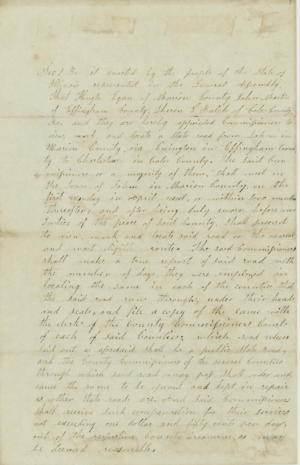 Sec 1 Be it enacted by the people of the State of
Illinois represented in the General Assembly
That Hugh Egan of Marion County John Martin
of Effingham County, of Coles County
Be, and they are hereby appointed Commissioners to
view, mark, and locate a State road from Salem in
Marion County via Ewington in Effingham coun
ty to Charleston in Coles County. The Said Com
missioners or a majority of them, shall meet in
the town of Salem in Marion County, on the
first monday in April next, or within two months
thereafter, and after being duly sworn before some
justice of the peace of said County, shall proceed
to view, mark and locate said road on the nearest
and most eligible route. The said Commissioners
shall make a true report of said road with
the number of days they were employed in
locating the same in each of the counties that
the said road runs through, under their hands
and seals, and file a copy of the same with
the clerk of the County Commissioners Court
of each of said Counties, which road when
laid out as aforesaid shall be a public State road,
and the County Commissioners of the several Counties
through which said road may pass shall order and
cause the same to be opened and kept in repair
as other State roads are. And said Commissioners
shall receive such compensation for their services
not exceeding one dollar and fifty cents per day,
out of the respective County Treasuries, as may
be deemed reasonable.